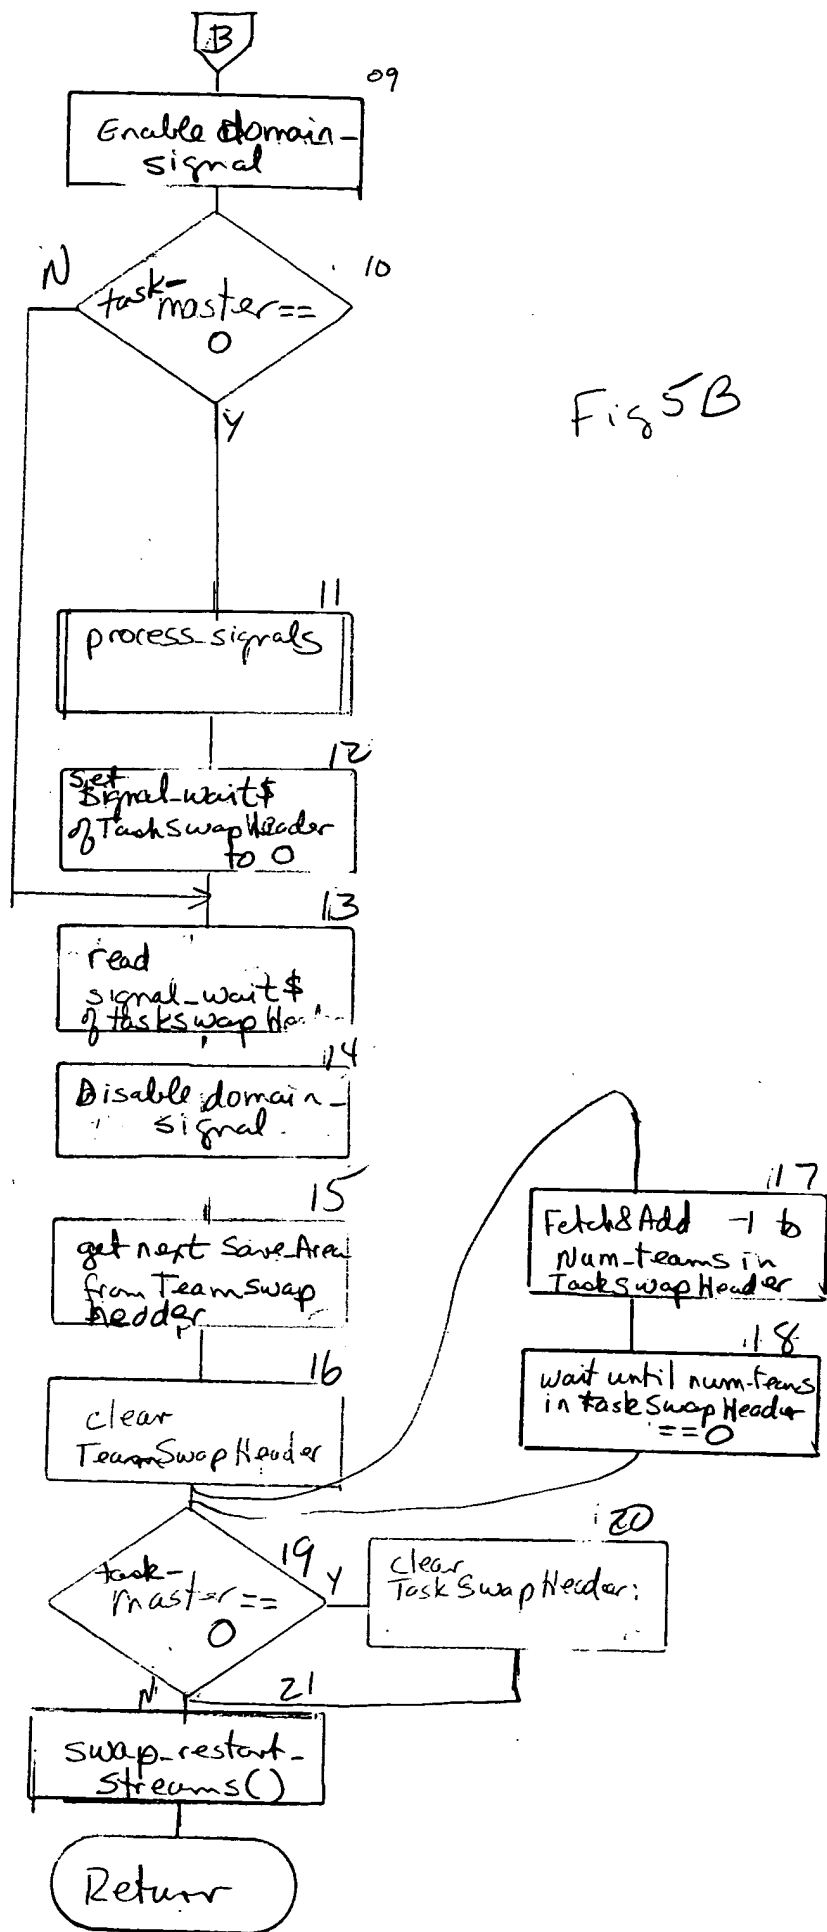 B
09
Enable domain-
signal
10
N
task-
master==
0
Y
Fig 5B
11
process_signals
12
set
signal_wait$
of TaskSwapHeader
to 0
13
read
signal_wait$
of taskSwap
14
Disable domain-
signal.
15
get next Save_Area
from TeamSwap
hedder
16
clear
TeamSwapHeader
17
Fetch&Add -1 to
Num-teams in
TaskSwapHeader
18
wait until num-teams
in taskSwapHeader
==0
19
task-
master==
0
Y
20
clear
TaskSwapHeader:
N
21
swap_restart_
streams()
Return